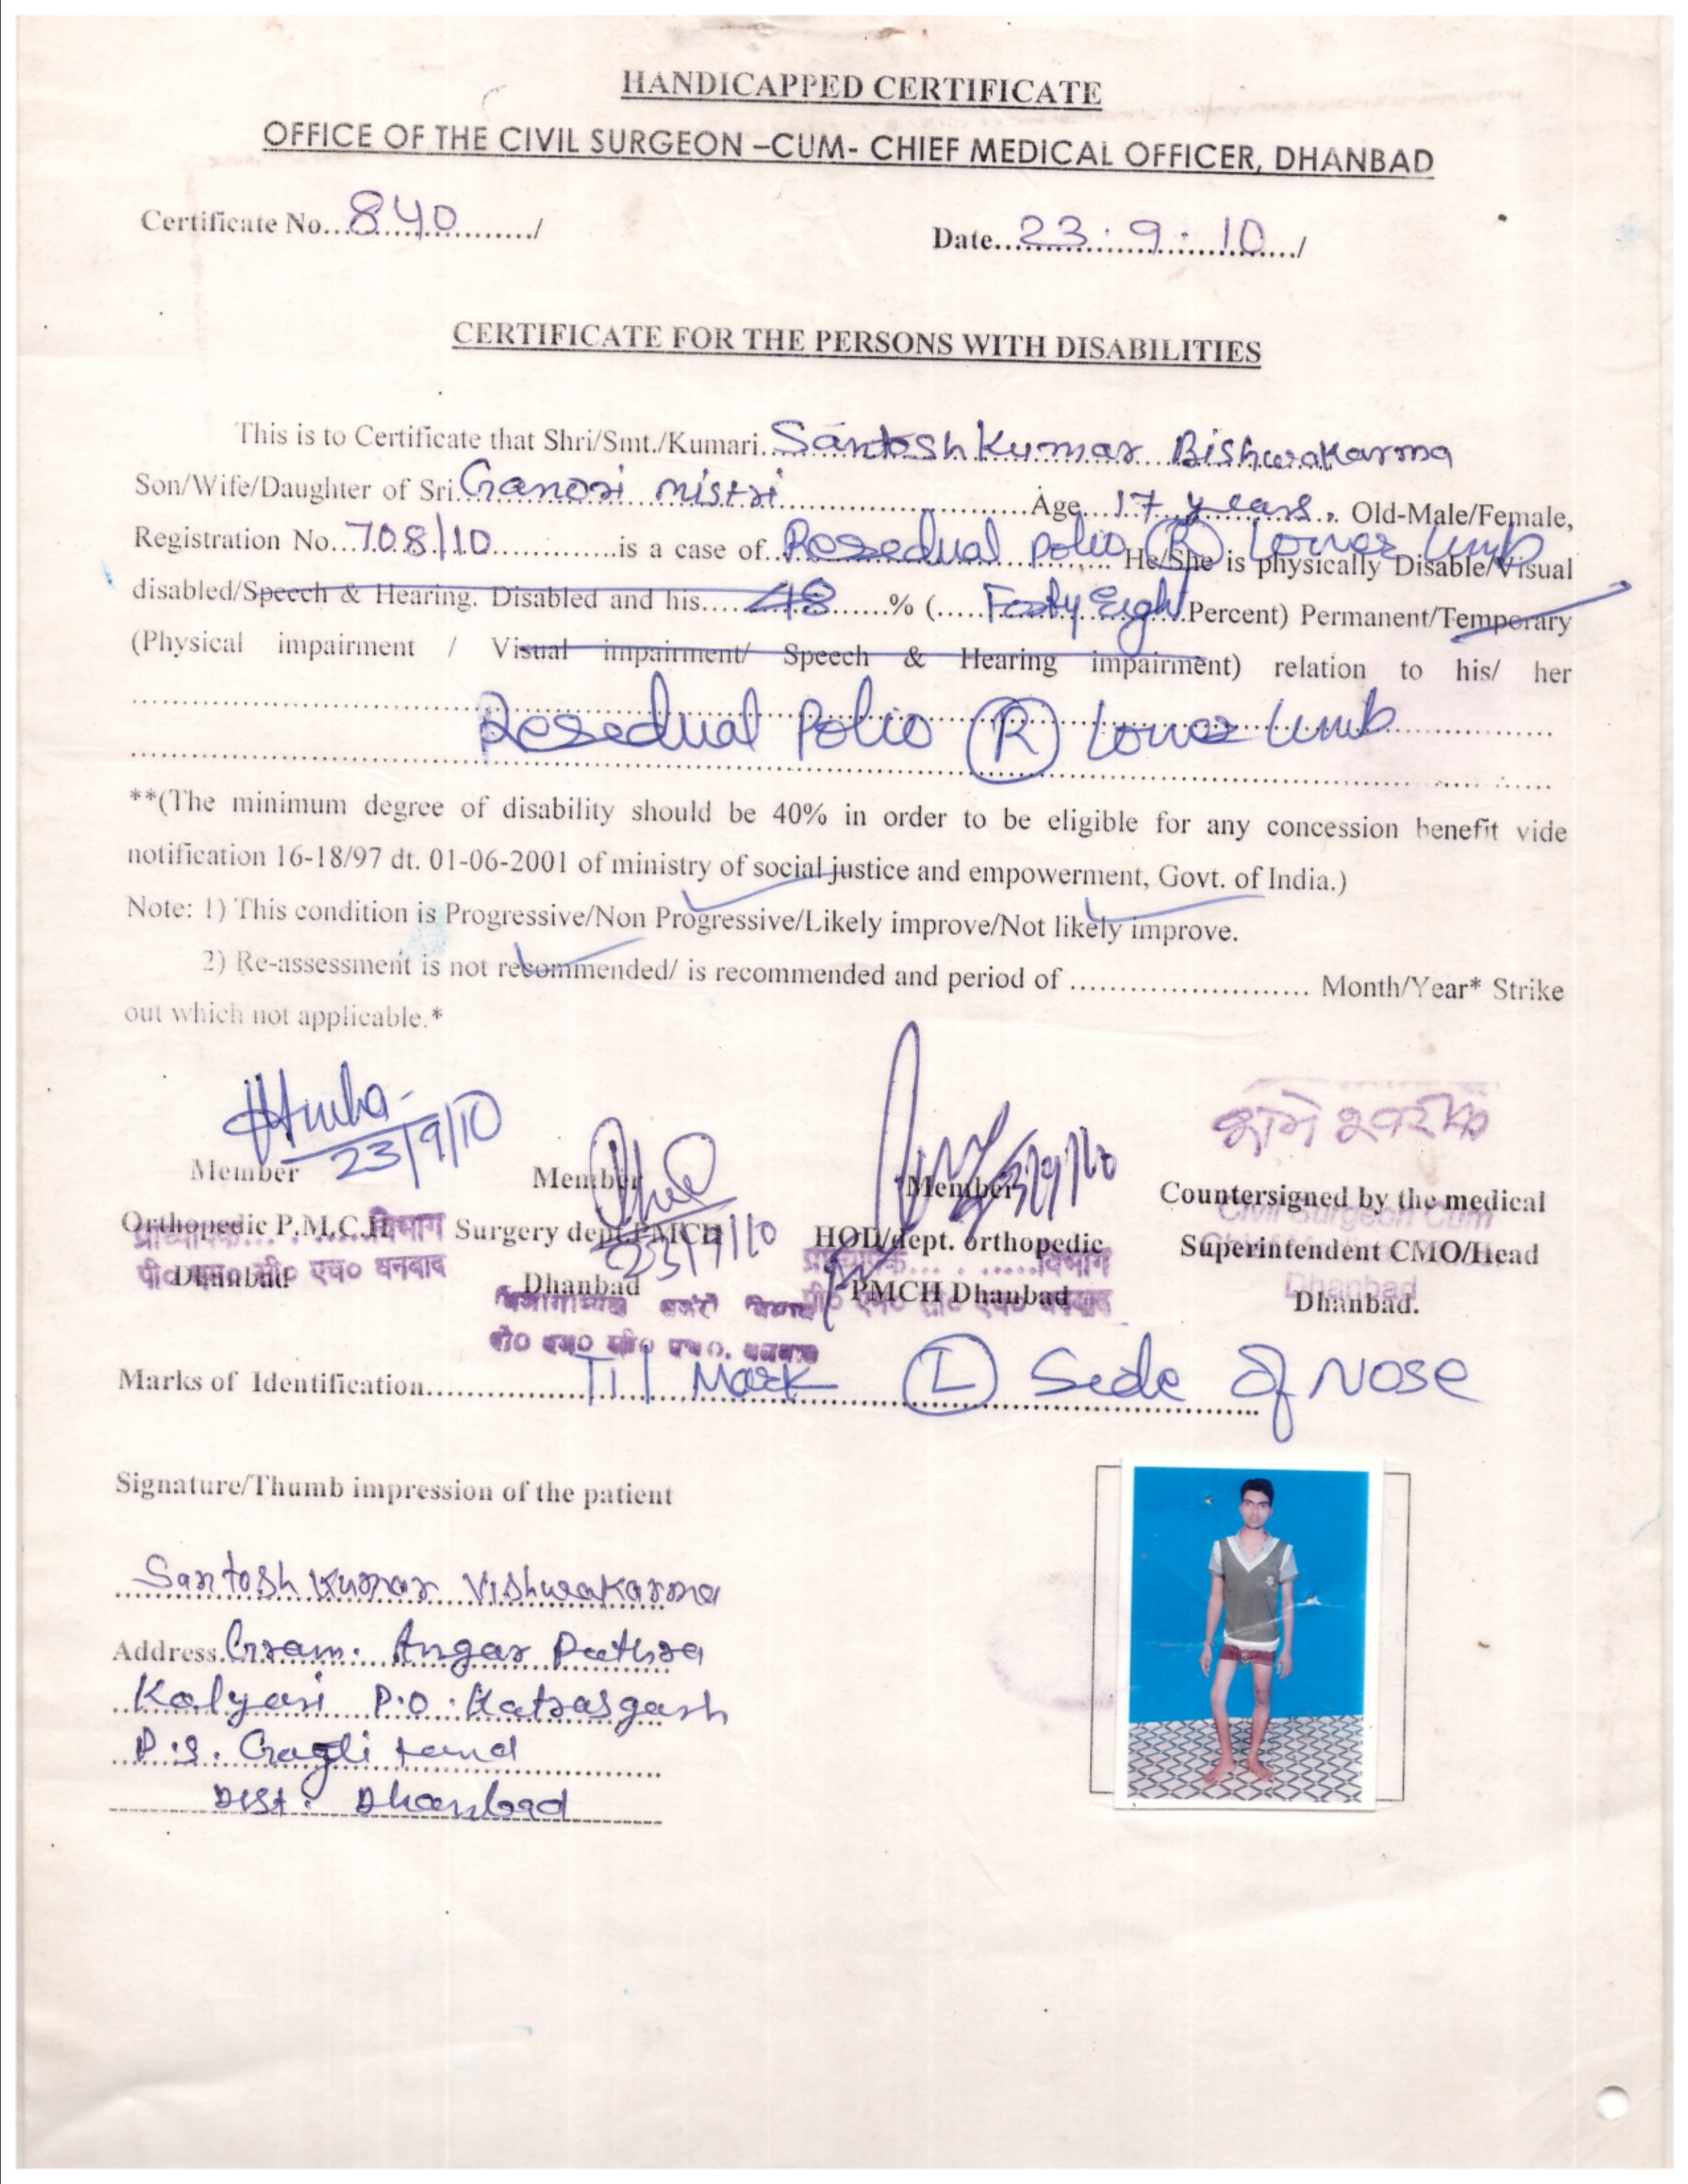 HANDICAPPED CERTIFICATE
OFFICE OF THE CIVIL SURGEON –CUM- CHIEF MEDICAL OFFICER, DHANBAD
Certificate No...840................/
Date...23.9.10.../
CERTIFICATE FOR THE PERSONS WITH DISABILITIES
This is to Certificate that Shri/Smt./Kumari. Santosh Kumar Bishwakarma
Son/Wife/Daughter of Sri. Ganori mistri Age 17 years. Old-Male/Female,
Registration No...708/10.............is a case of Resedual polio (R) Lower Limb He/She is physically Disable/Visual
disabled/Speech & Hearing. Disabled and his.....48......% (.....Forty Eigh Percent) Permanent/Temporary
(Physical impairment / Visual impairment/ Speech & Hearing impairment) relation to his/ her
Resedual Polio (R) Lower Limb
**(The minimum degree of disability should be 40% in order to be eligible for any concession benefit vide
notification 16-18/97 dt. 01-06-2001 of ministry of social justice and empowerment, Govt. of India.)
Note: 1) This condition is Progressive/Non Progressive/Likely improve/Not likely improve.
2) Re-assessment is not recommended/ is recommended and period of ........................ Month/Year* Strike
out which not applicable.*
23/9/10
23/9/10
Member Member Member Countersigned by the medical
Civil Surgeon Cum
Orthopedic P.M.C.H Surgery dept.PMCH HOD/dept. orthopedic Superintendent CMO/Head
विभाग 23/9/10 विभाग
Dhanbad Dhanbad PMCH Dhanbad Dhanbad.
पी० एम० सी० एच० धनबाद
Dhanbad
Marks of Identification Til Mark (L) Side of Nose
Signature/Thumb impression of the patient
Santosh Kumar Vishwakarma
Address. Gram. Angar Pathra
Kalyani P.O. Katrasgarh
P.S. Gagli tand
Dist. Dhanbad